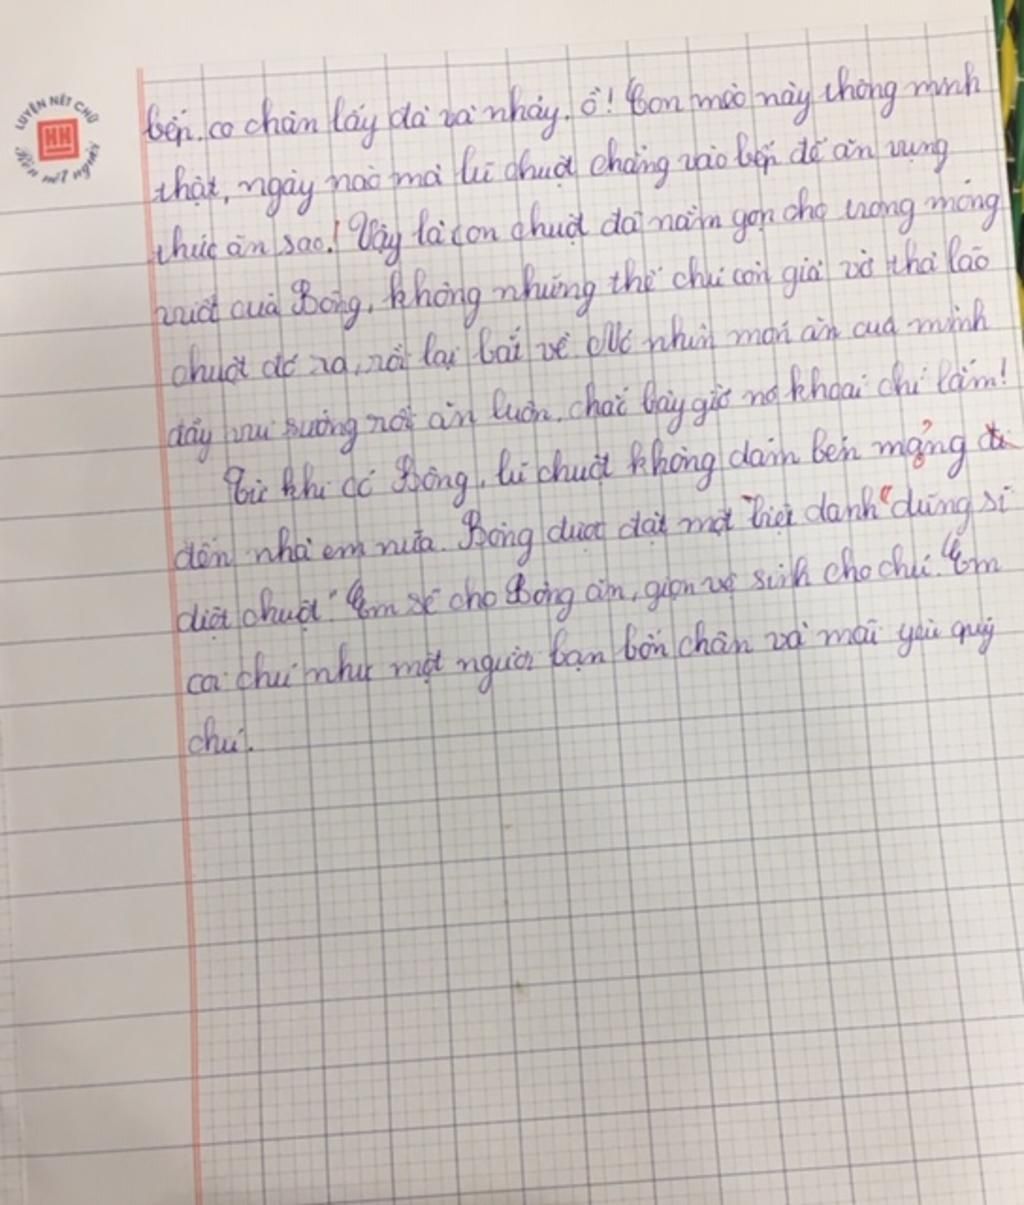 LUYỆN NÉT CHỮ
HN
Rèn nết người
bếp, co chân lấy đà và nhảy. ồ! Con mèo này thông minh
thật, ngày nào mà lũ chuột chẳng vào bếp để ăn vụng
thức ăn sao! Vậy là con chuột đã nằm gọn cho trong móng
vuốt của Bông, không những thế chú còn giả vờ thả lão
chuột đó ra, rồi lại bắt về nhìn món ăn của mình
đầy vui sướng rồi ăn luôn, chắc bây giờ nó khoái chí lắm!
Từ khi có Bông, lũ chuột không dám bén mảng đi
đến nhà em nữa. Bông được đặt một biệt danh "dũng sĩ
diệt chuột" Em sẽ cho Bông ăn, giọn vệ sinh cho chú. Em
coi chú như một người bạn bốn chân và mãi yêu quý
chú.